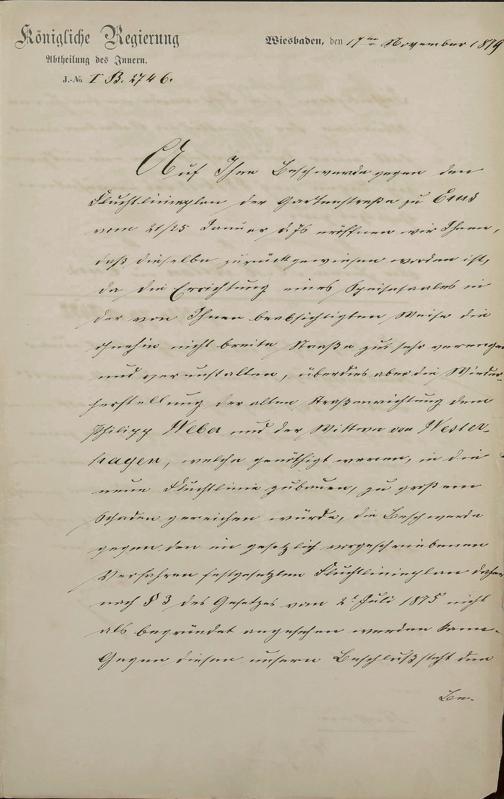 Königliche Regierung
Abtheilung des Innern.
J.-No. I B. 2746.
Wiesbaden, den 17ten November 1879
Auf Ihre Beschwerde gegen den
Fluchtlinienplan der Gartenstraße zu Ems
vom 20/25 Januar d. Js eröffnen wir Ihnen,
daß dieselbe zurückgewiesen worden ist,
da die Errichtung eines Speisesaales in
der von Ihnen beabsichtigten Weise die
ohnehin nicht breite Straße zu sehr verengen
und verunstalten, überdies aber die Wieder
herstellung der alten Straßenrichtung dem
Philipp Weber und der Wittwe von Wester-
hagen, welche genöthigt waren, in die
neue Fluchtlinie zu bauen, zu großem
Schaden gereichen würde, die Beschwerde
gegen den im gesetzlich vorgeschriebenen
Verfahren festgesetzten Fluchtlinienplan daher
nach § 3 des Gesetzes vom 2t Juli 1875 nicht
als begründet angesehen werden kann.
Gegen diesen unsern Beschluß steht den
Be-